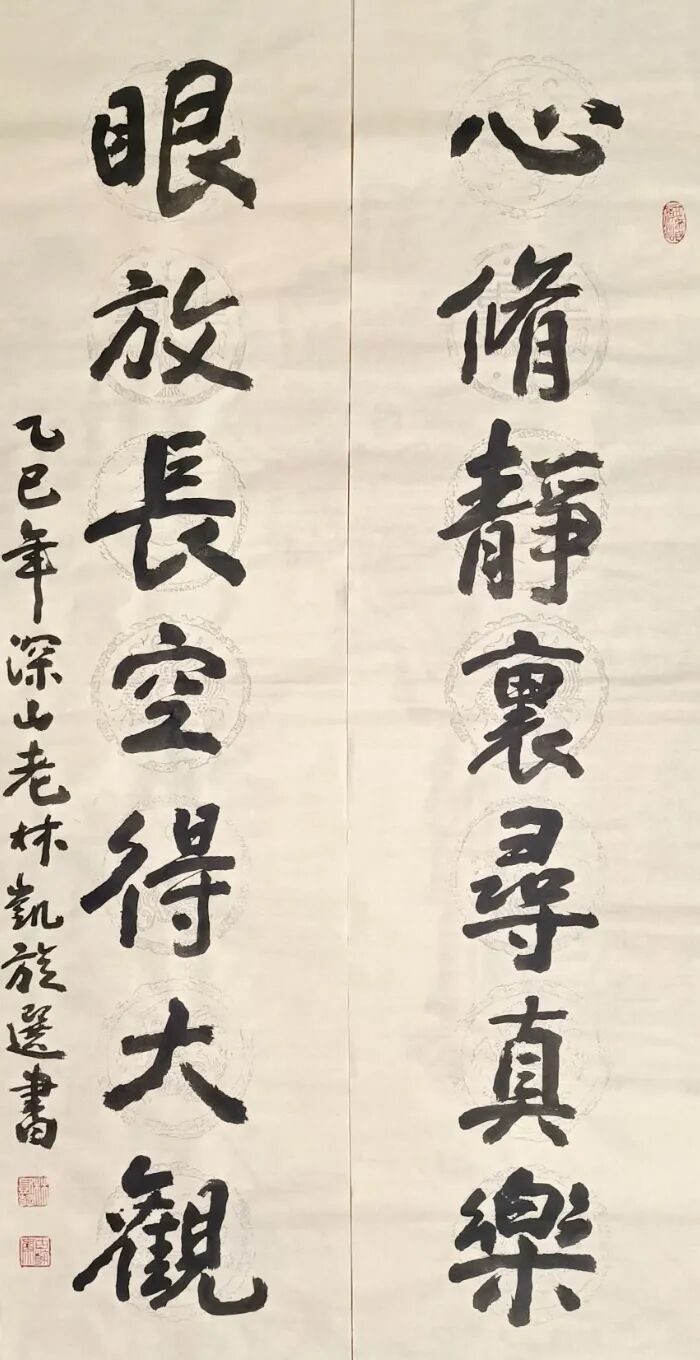 心脩靜裏尋真樂
眼放長空得大觀
乙巳年深山老林凱旋選書